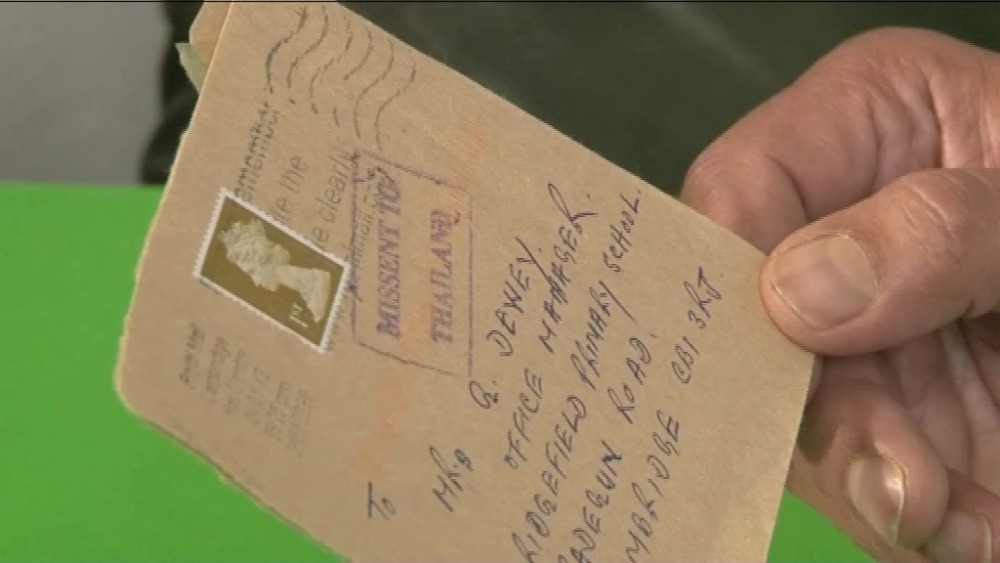 emember
e the
e clearly
MISSENT TO
THAILAND
1st
To
MR.
R. DEWEY
OFFICE MANAGER.
RIDGEFIELD PRIMARY SCHOOL.
ROAD.
MBRIDGE CB1 3RJ